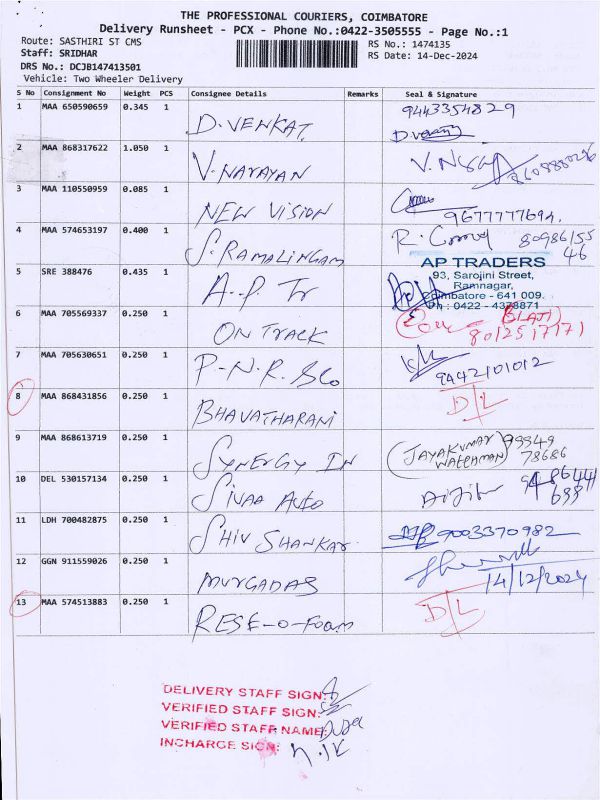 THE PROFESSIONAL COURIERS, COIMBATORE
Delivery Runsheet - PCX - Phone No.:0422-3505555 - Page No.:1
Route: SASTHIRI ST CMS
RS No.: 1474135
Staff: SRIDHAR
RS Date: 14-Dec-2024
DRS No.: DCJB147413501
Vehicle: Two Wheeler Delivery
S No Consignment No Weight PCS Consignee Details Remarks Seal & Signature
1 MAA 650590659 0.345 1 D.VENKAT 9443354829
2 MAA 868317622 1.050 1 V.NARAYAN
3 MAA 110550959 0.085 1 NEW VISION 9677777694.
4 MAA 574653197 0.400 1 S.RAMALINGAM 80986155
46
5 SRE 388476 0.435 1 A.P. Tr
AP TRADERS
93, Sarojini Street,
Ramnagar,
Coimbatore - 641 009.
Ph : 0422 - 4378871
6 MAA 705569337 0.250 1 ON TRACK
8012517171
7 MAA 705630651 0.250 1 P-N.R. 9442101012
8 MAA 868431856 0.250 1 BHAVATHARANI D/L
9 MAA 868613719 0.250 1 SYNERGY IN JAYAKUMAR 99949
78686
10 DEL 530157134 0.250 1 SIVAA AUTO
11 LDH 700482875 0.250 1 SHIV SHANKAR 9003370982
12 GGN 911559026 0.250 1 MURGADAS
14/12/2024
13 MAA 574513883 0.250 1 RESE-O-FOAM D/L
DELIVERY STAFF SIGN:
VERIFIED STAFF SIGN:
VERIFIED STAFF NAME:
INCHARGE SIGN: